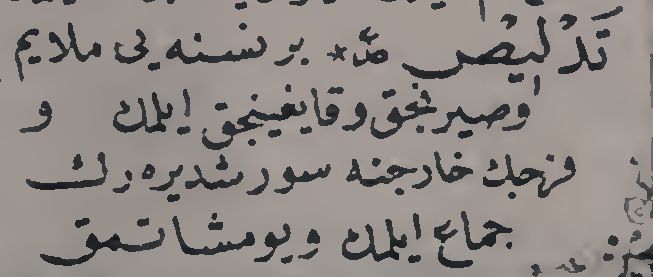 تَدْلِيصْ صَّ* بر نسنه یی ملایم
و صیرنجق و قایغینجق ایلمك و
فرجك خارجنه سورشدیره رك
جماع ایلمك و یومشاتمق